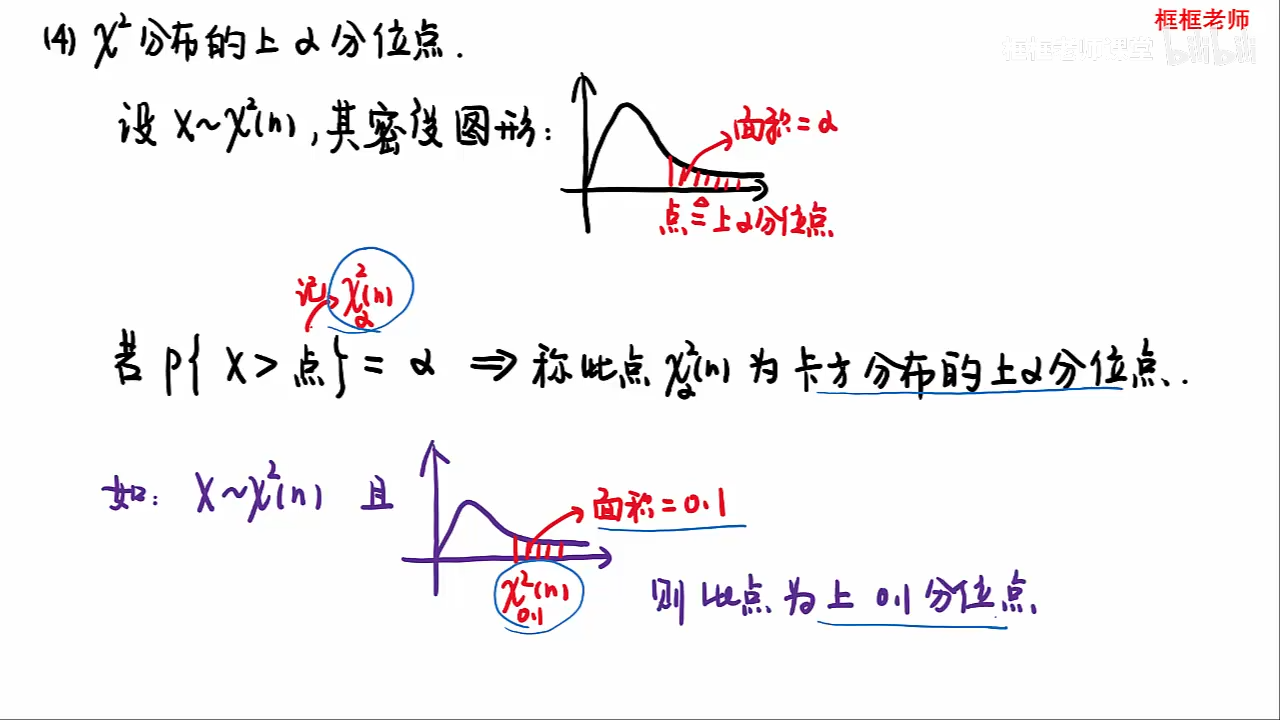 框框老师
框框老师课堂 bilibili
(4) χ²分布的上α分位点.
设 X~χ²(n), 其密度图形:
面积=α
点≜上α分位点
记 χ²α(n)
若 P{ X > 点 } = α ⇒ 称此点 χ²α(n) 为 卡方分布的上α分位点.
如: X~χ²(n) 且
面积=0.1
χ²0.1(n)
则此点为上 0.1 分位点